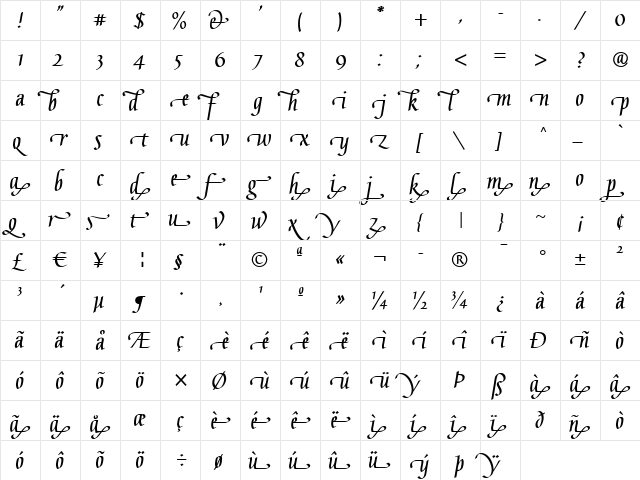 ! " # $ % & ' ( ) * + , - . / 0
1 2 3 4 5 6 7 8 9 : ; < = > ? @
a b c d e f g h i j k l m n o p
q r s t u v w x y z [ \ ] ^ _ `
a b c d e f g h i j k l m n o p
q r s t u v w x y z { | } ~ ¡ ¢
£ € ¥ ¦ § ¨ © ª « ¬ - ® ¯ ° ± ²
³ ´ µ ¶ · ¸ ¹ º » ¼ ½ ¾ ¿ à á â
ã ä å Æ ç è é ê ë ì í î ï Ð ñ ò
ó ô õ ö × Ø ù ú û ü ý Þ ß à á â
ã ä å æ ç è é ê ë ì í î ï ð ñ ò
ó ô õ ö ÷ ø ù ú û ü ý þ ÿ